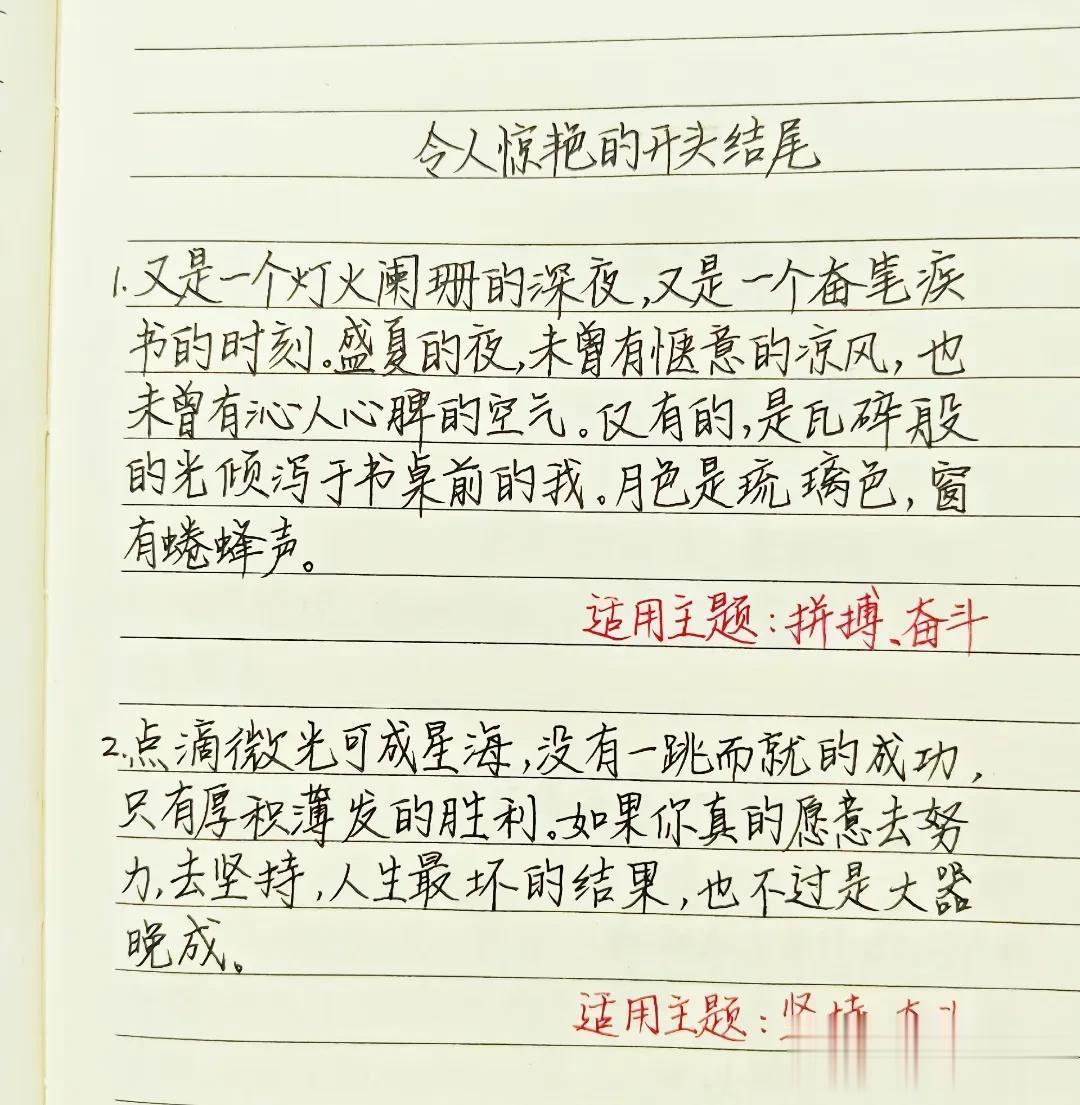 令人惊艳的开头结尾
1.又是一个灯火阑珊的深夜,又是一个奋笔疾
书的时刻。盛夏的夜,未曾有惬意的凉风,也
未曾有沁人心脾的空气。仅有的,是瓦碎般
的光倾泻于书桌前的我。月色是琉璃色,窗
有蜷蜂声。
适用主题:拼搏、奋斗
2.点滴微光可成星海,没有一跳而就的成功,
只有厚积薄发的胜利。如果你真的愿意去努
力,去坚持,人生最坏的结果,也不过是大器
晚成。
适用主题: